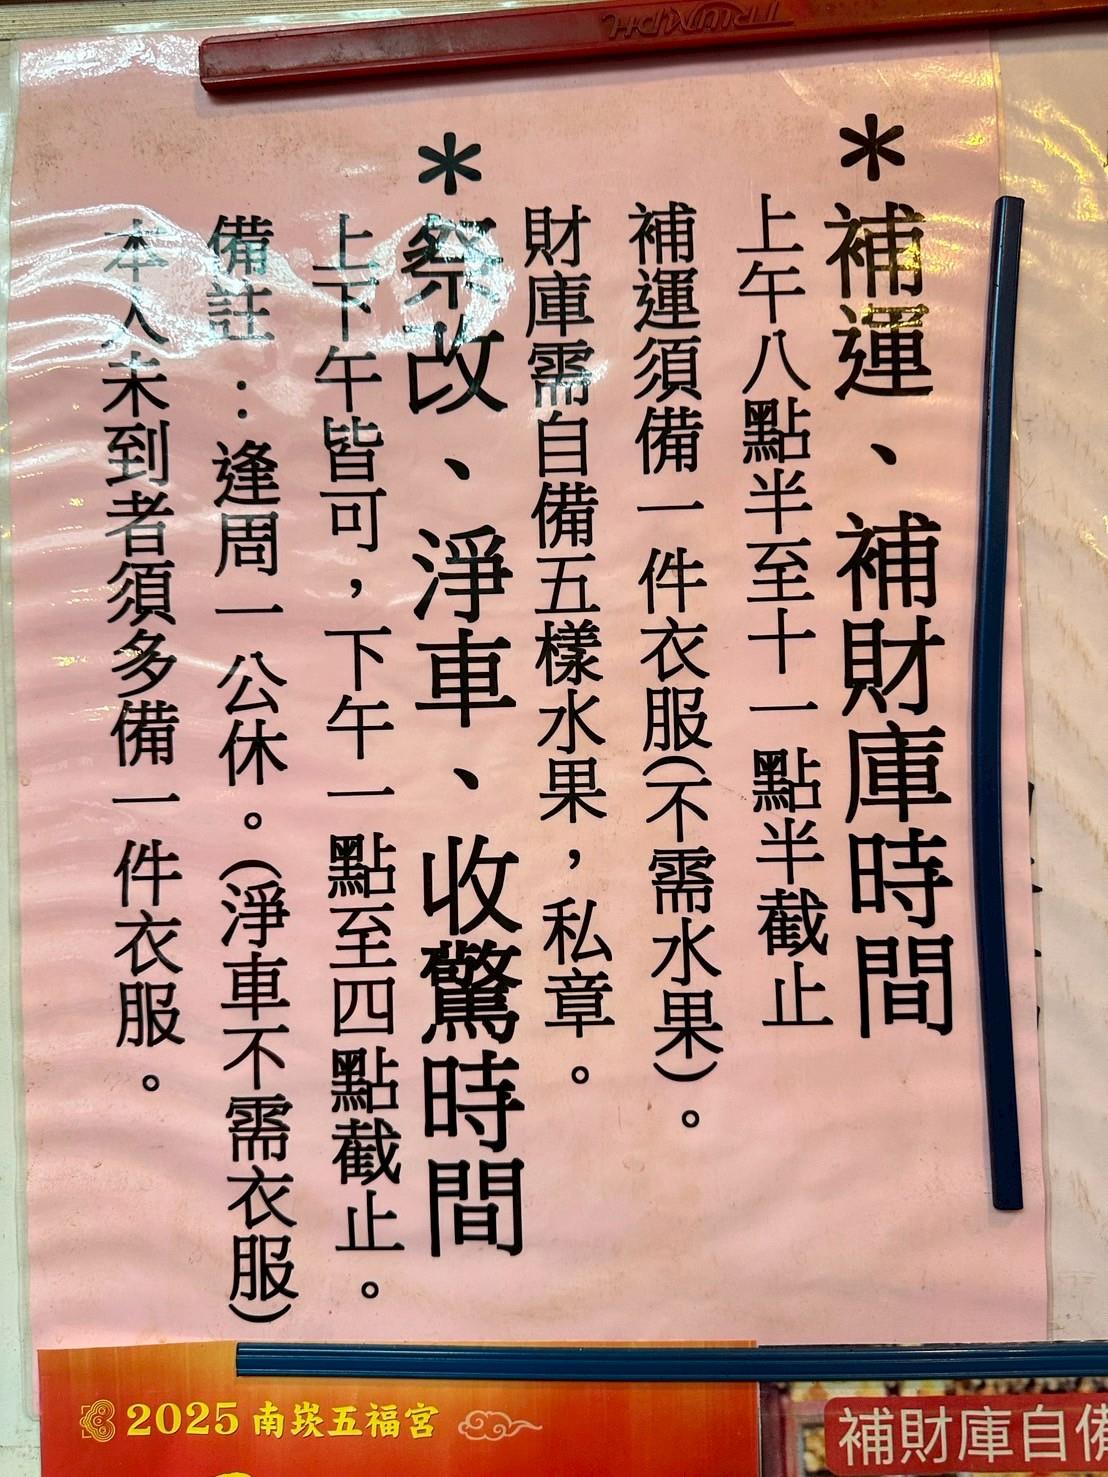 ＊補運、補財庫時間
上午八點半至十一點半截止
補運須備一件衣服(不需水果)。
財庫需自備五樣水果，私章。
＊祭改、淨車、收驚時間
上下午皆可，下午一點至四點截止。
備註：逢周一公休。(淨車不需衣服)
本人未到者須多備一件衣服。
TRIUMPH
2025 南崁五福宮
補財庫自備